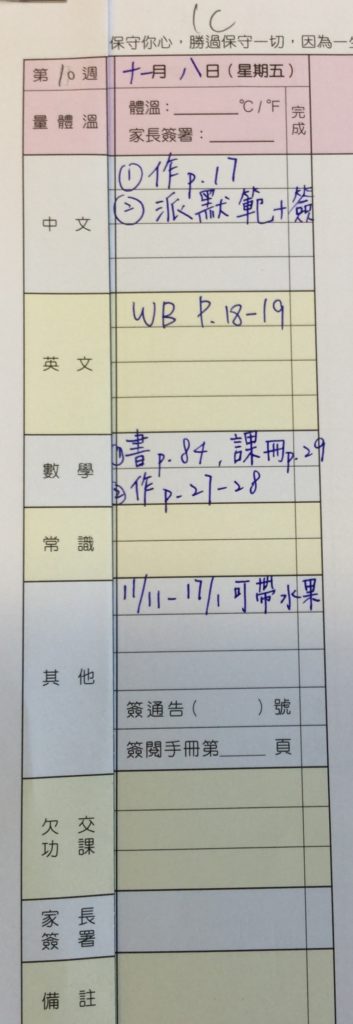 1C
保守你心，勝過保守一切，因為一
第10週 十一月八日（星期五）
量體溫 體溫：______℃/℉ 完成
家長簽署：______
中文 ①作p.17
②派默範+簽
英文 WB P.18-19
數學 ①書p.84，課冊p.29
②作p.27-28
常識
其他 11/11-17/1可帶水果
簽通告（ ）號
簽閱手冊第____頁
欠交功課
家長簽署
備註